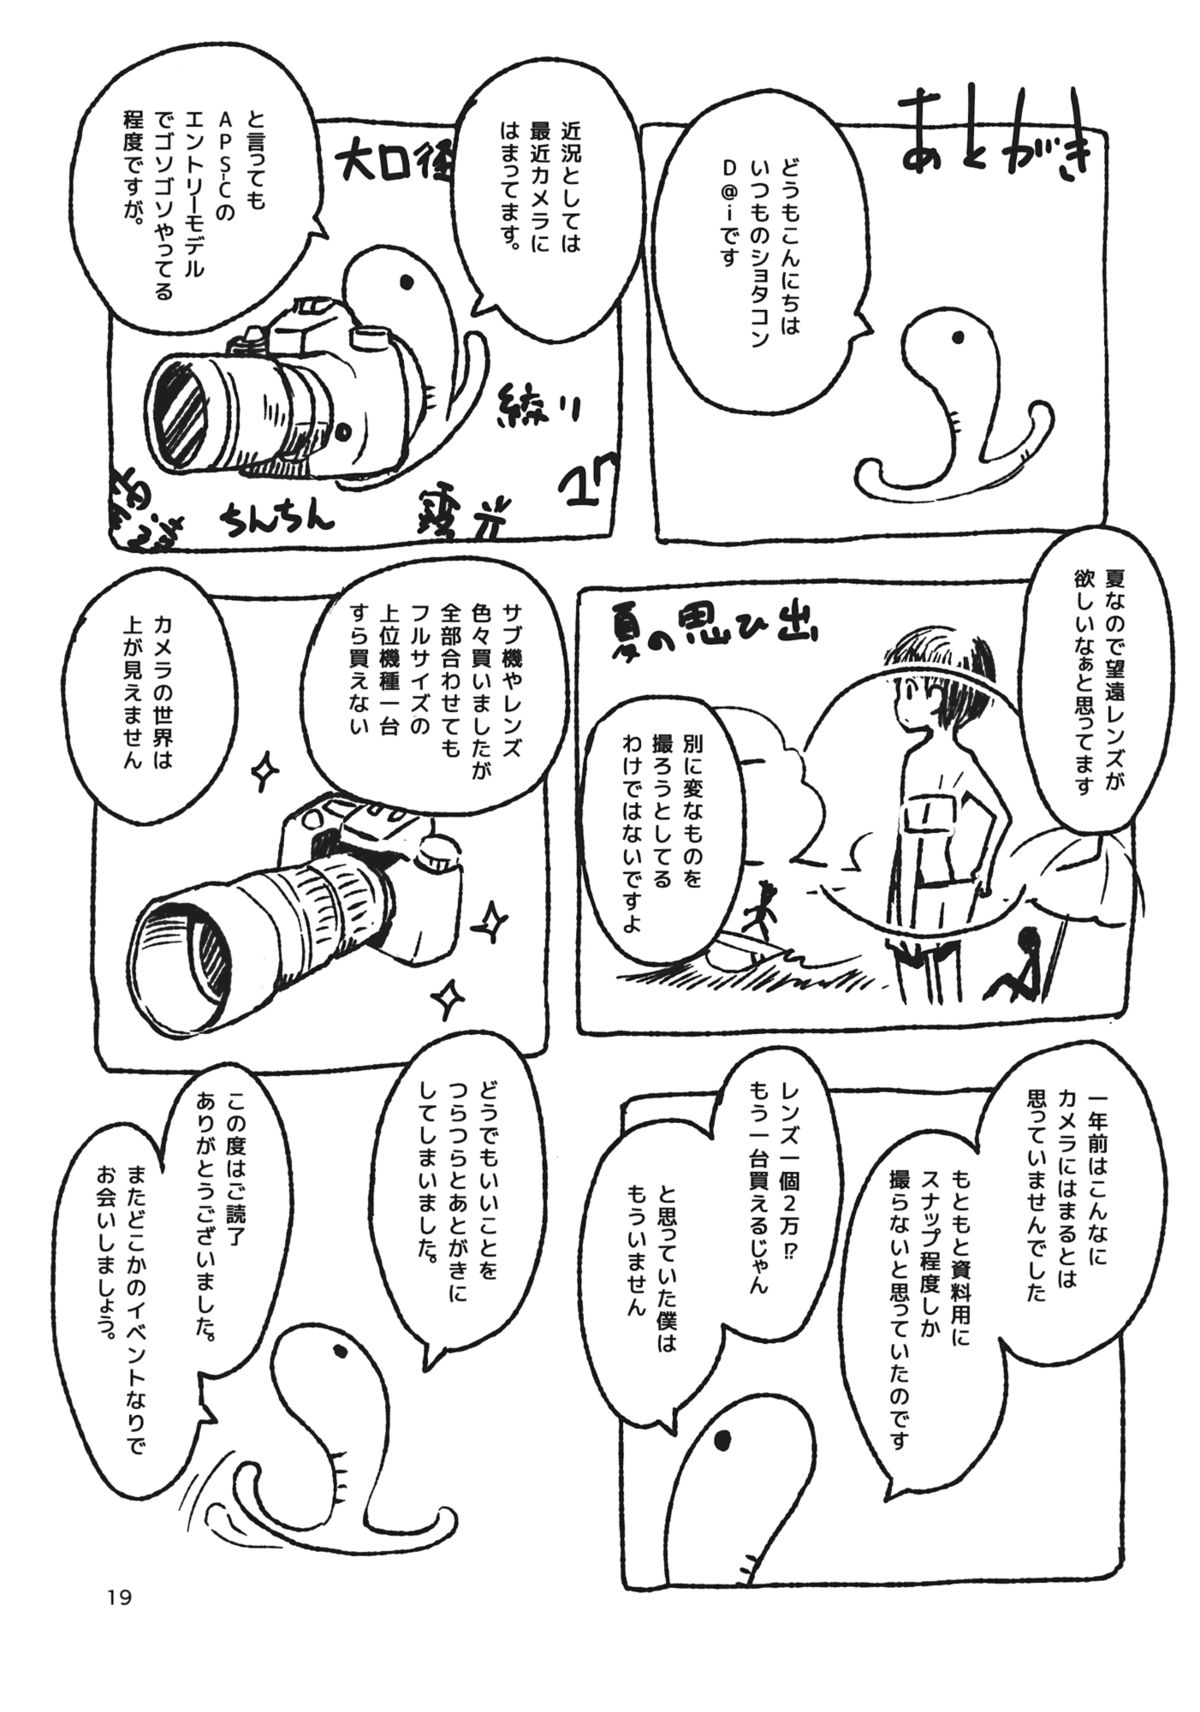 あとがき
どうもこんにちは
いつものショタコン
D@iです
近況としては
最近カメラに
はまってます。
と言っても
APSCの
エントリーモデル
でゴソゴソやってる
程度ですが。
大口径
絞り
ちんちん
夏なので望遠レンズが
欲しいなぁと思ってます
夏の思ひ出
別に変なものを
撮ろうとしてる
わけではないですよ
サブ機やレンズ
色々買いましたが
全部合わせても
フルサイズの
上位機種一台
すら買えない
カメラの世界は
上が見えません
一年前はこんなに
カメラにはまるとは
思っていませんでした
もともと資料用に
スナップ程度しか
撮らないと思っていたのです
レンズ一個2万!?
もう一台買えるじゃん
と思っていた僕は
もういません
どうでもいいことを
つらつらとあとがきに
してしまいました。
この度はご読了
ありがとうございました。
またどこかのイベントなりで
お会いしましょう。
19